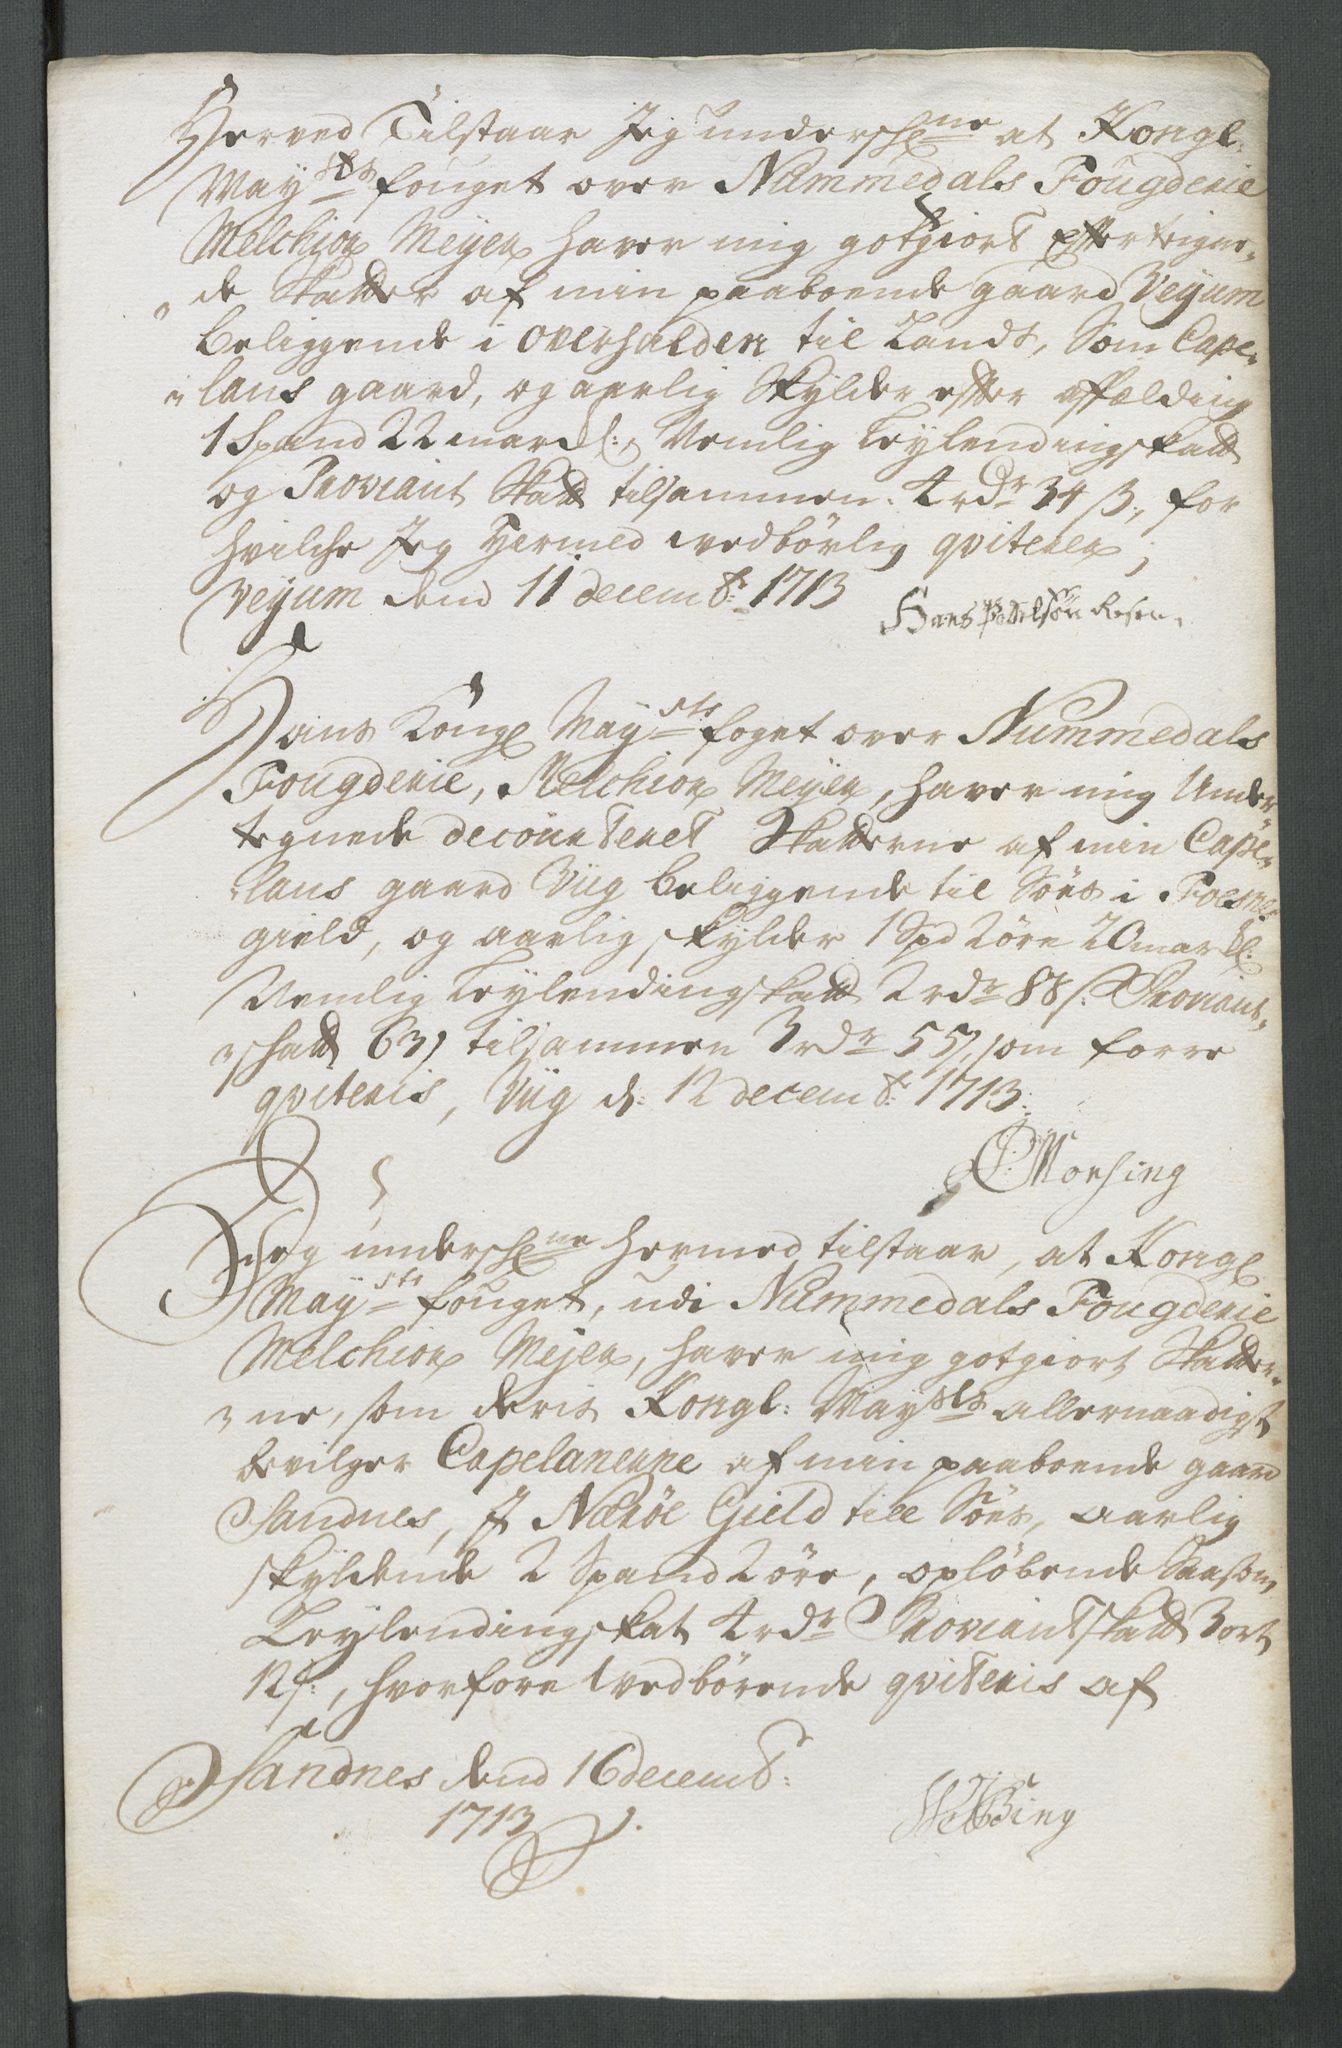 Herved Tilstaar Jeg undersch:ne at Kongl:
May:sts fouget over Nummedals Fougderie
Melchior Meyer haver mig gotgiort effterteigne-
de Skatter af min paaboende gaard Veyum
beliggende i Overhalden til Lands, Som Cape-
lans gaard, og aarlig Skylder efter affælding
1 Spand 22 markl:, Nemlig Leylendingskatt
og Proviant Skatt tilsammen: 4 rdr 34 β, for
hvilche Jeg Hermed vedbörlig qviterer;
Veyum dend 11 decembr: 1713
Hans Rosen.
Hans Kongl May:sts foget over Nummedals
Fougderie, Melchior Meyer, haver mig Under-
tegnede decourteret Skatterne af min Cape-
lans gaard Viig beliggende til Söes i Foesnes
gield, og aarlig skylder 1 Spd 2 öre 20 markl:
Nemlig Leylendingskatt 2 rdr 88 β: Proviant-
skatt 63 β tilsammen 3 rdr 55 β, som forre
qviteris, Viig d: 12 decembr: 1713:
Morsing
Jeg undersch:ne hermed tilstaar, at Kongl
May:sts fouget, udi Nummedals Fougderie
Melchior Mejer, haver mig gotgiort Skatter-
ne, som deris Kongl: May:sts allernaadigst
bevilger Capelanerne af min paaboende gaard
Sandnes, J Næröe Gield till Söes, aarlig
skyldende 2 Spand 2 öre, oplöbende Saasom,
Leylendingskat 4 rdr Proviantskatt 3 ort
12 β:, hvorfore vedbörende qviteris af
Sandnes dend 16 decembr:
1713